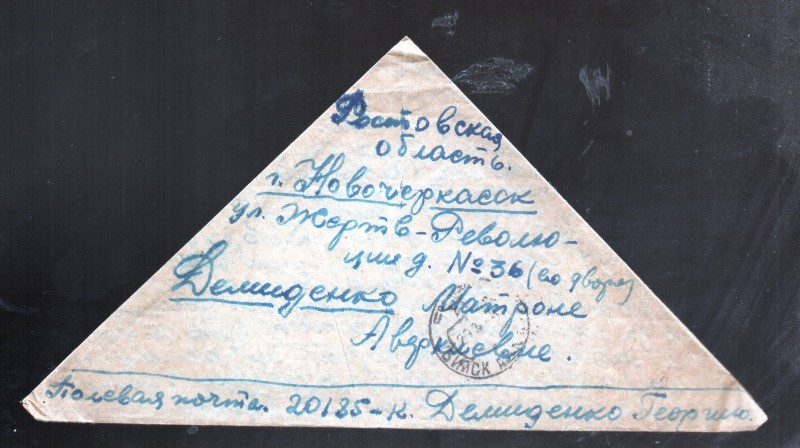 Ростовская
область.
г. Новочеркасск
ул. Жертв-Револю-
ции д. № 36 (во дворе)
Демиденко Матроне
Аверкиевне.
Полевая почта. 20125-К. Демиденко Георгию.